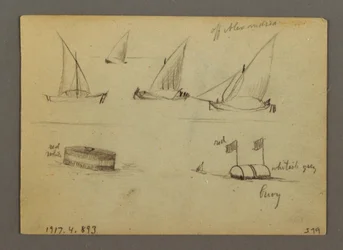 off Alexandria
red
white
red
whitish grey
Buoy
1917.4.893
379